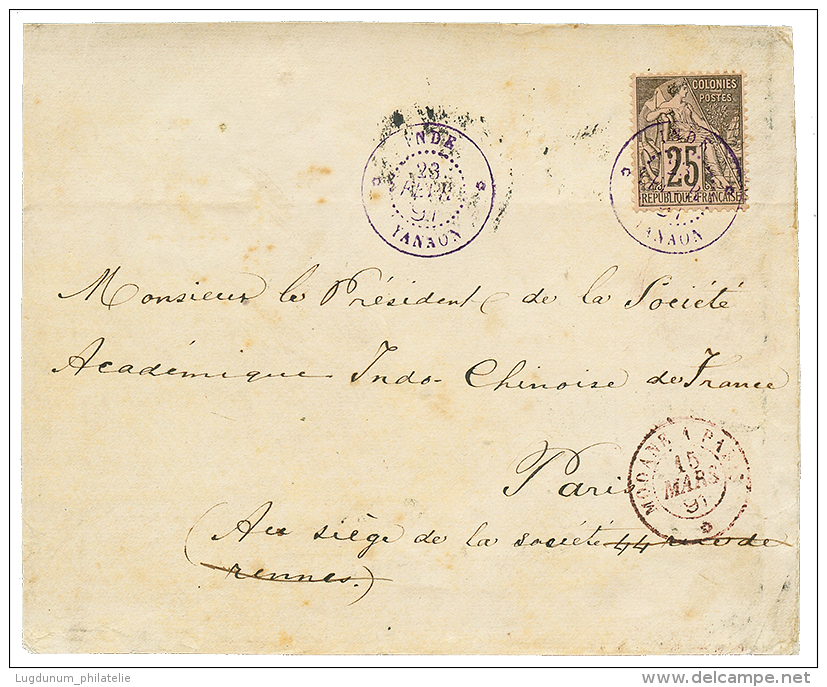 COLONIES
POSTES
25
RÉPUBLIQUE FRANÇAISE
INDE
23
91
YANAON
YANAON
Monsieur le Président de la Société
Académique Indo-Chinoise de France
Paris
MODANE A PARIS
15
MARS
91
(Au siège de la société 44 rue de
rennes.)
Lugdunum_philatelie
www.delcampe.net